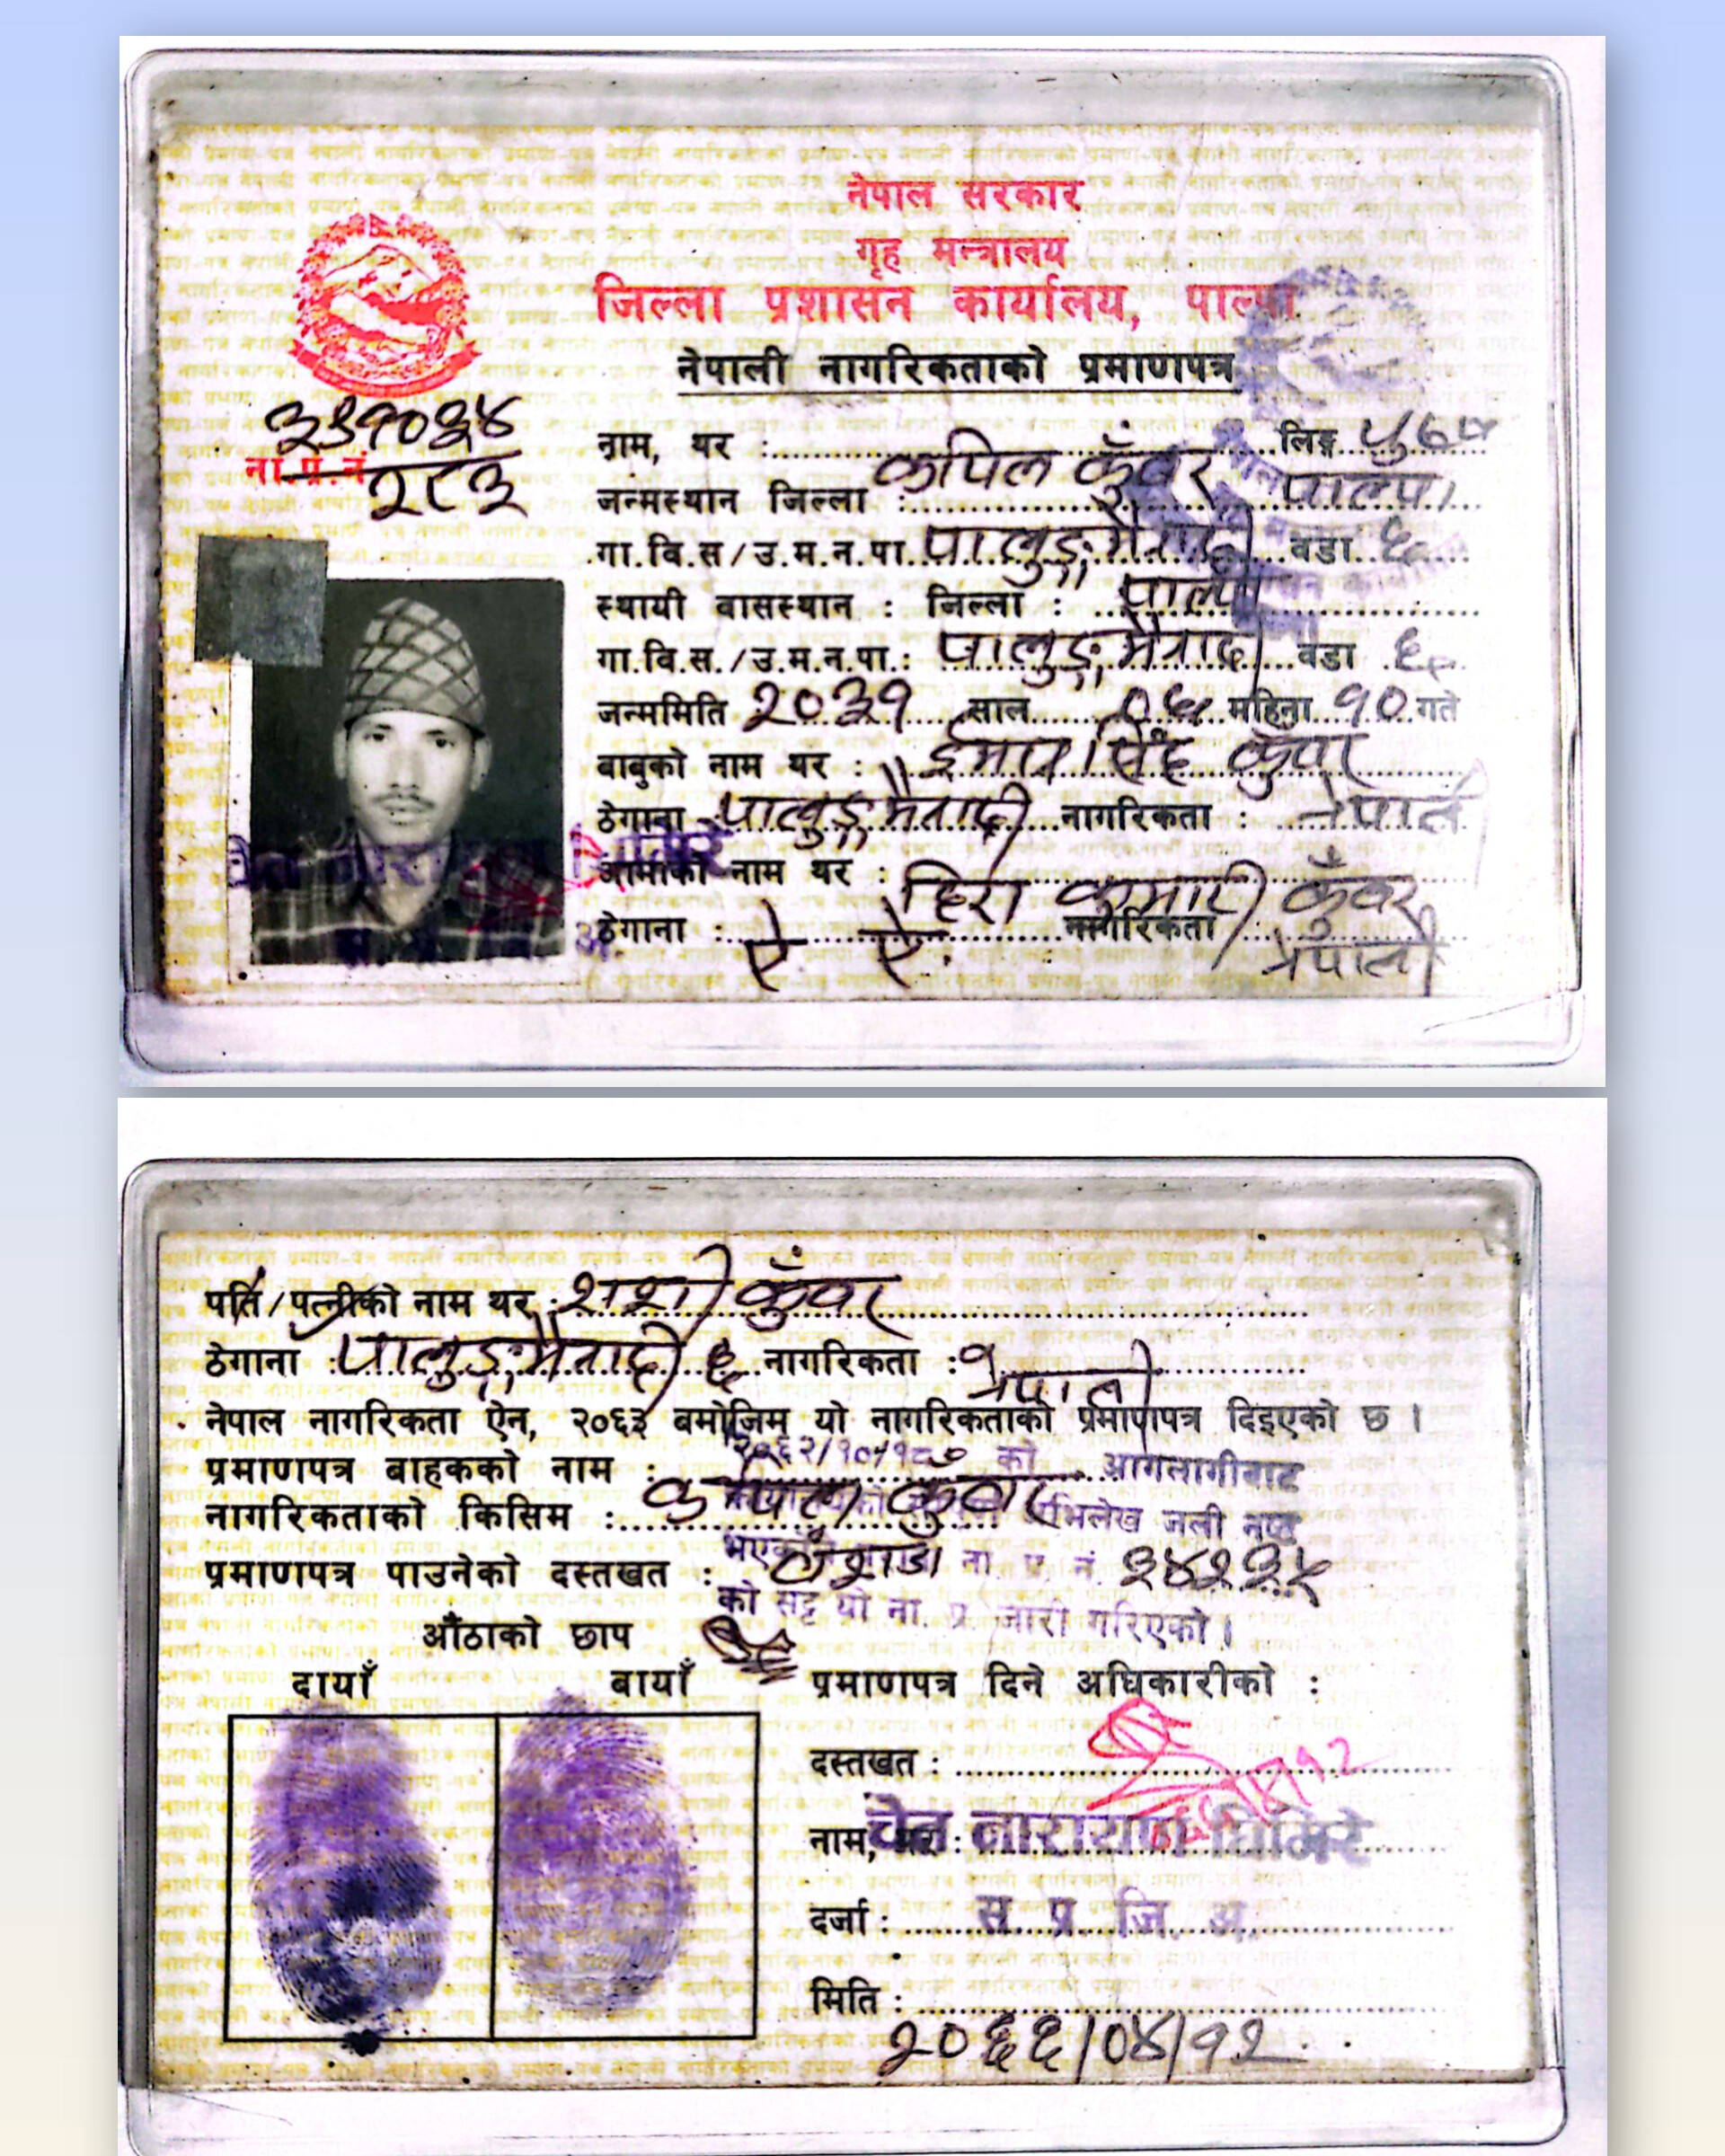 नेपाल सरकार
गृह मन्त्रालय
जिल्ला प्रशासन कार्यालय, पाल्पा
नेपाली नागरिकताको प्रमाणपत्र
ना.प्र.नं.
२८३
नाम, थर : कपिल कुँवर लिङ्ग पुरुष
जन्मस्थान जिल्ला : पाल्पा
गा.वि.स/उ.म.न.पा. पालुङमैनादी वडा ६
स्थायी वासस्थान : जिल्ला : पाल्पा
गा.वि.स./उ.म.न.पा.: पालुङमैनादी वडा ६
जन्ममिति २०३१ साल महिना १० गते
बाबुको नाम थर : सिंह कुँवर
ठेगाना पालुङमैनादी नागरिकता : नेपाली
आमाको नाम थर : हिरा कुमारी कुँवर
ठेगाना : ऐ. ऐ. नागरिकता : नेपाली
पति/पत्नीको नाम थर : शशी कुँवर
ठेगाना : पालुङमैनादी ६ नागरिकता : नेपाली
नेपाल नागरिकता ऐन, २०६३ बमोजिम यो नागरिकताको प्रमाणपत्र दिइएको छ ।
को आगलागीबाट
प्रमाणपत्र बाहकको नाम : कपिल कुँवर
नागरिकताको किसिम : वंशज
अभिलेख जली नष्ट
भएको ना. प्र. नं.
प्रमाणपत्र पाउनेको दस्तखत :
को सट्टा यो ना. प्र. जारी गरिएको ।
औंठाको छाप
दायाँ बायाँ
प्रमाणपत्र दिने अधिकारीको :
दस्तखत :
नाम, थर : चेत नारायण घिमिरे
दर्जा : स. प्र. जि. अ.
मिति :
२०६६/०४/१२